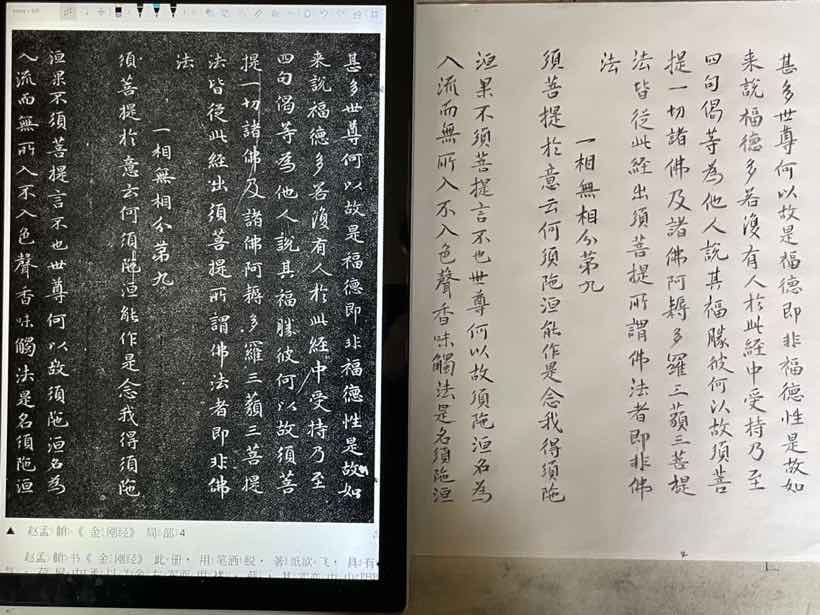 甚多世尊何以故是福德即非福德性是故如
来說福德多若復有人於此經中受持乃至
四句偈等為他人說其福勝彼何以故須菩
提一切諸佛及諸佛阿耨多羅三藐三菩提
法皆從此經出須菩提所謂佛法者即非佛
法
一相無相分第九
須菩提於意云何須陁洹能作是念我得須陁
洹果不須菩提言不也世尊何以故須陁洹名為
入流而無所入不入色聲香味觸法是名須陁洹
▲ 赵孟頫《金刚经》局部4
赵孟頫书《金刚经》此册,用笔洒脱,著纸欲飞,具有
甚多世尊何以故是福德即非福德性是故如
来說福德多若復有人於此經中受持乃至
四句偈等為他人說其福勝彼何以故須菩
提一切諸佛及諸佛阿耨多羅三藐三菩提
法皆從此經出須菩提所謂佛法者即非佛
法
一相無相分第九
須菩提於意云何須陁洹能作是念我得須陁
洹果不須菩提言不也世尊何以故須陁洹名為
入流而無所入不入色聲香味觸法是名須陁洹